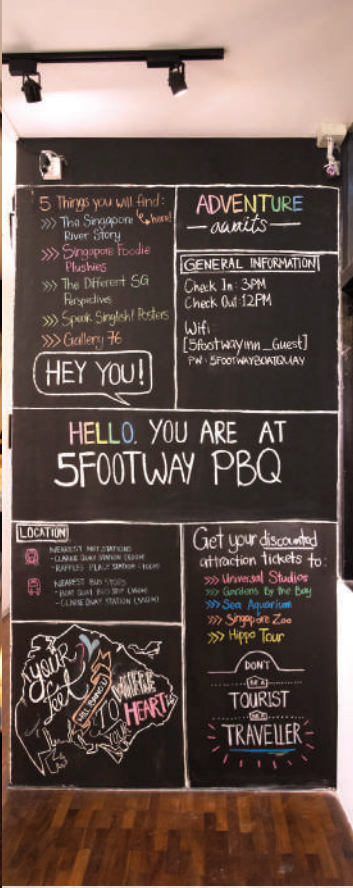 5 Things you will find:
here!
>>> The Singapore
River Story
>>> Singapore Foodie
Plushies
>>> The Different SG
Perspectives
>>> Speak Singlish! Posters
>>> Gallery 76
HEY YOU!
ADVENTURE
awaits
GENERAL INFORMATION
Check In: 3PM
Check Out: 12PM
Wifi:
[5footwayinn_Guest]
PW: 5FOOTWAYBOATQUAY
HELLO. YOU ARE AT
5FOOTWAY PBQ
LOCATION
NEAREST MRT STATIONS
- CLARKE QUAY STATION
- RAFFLES PLACE STATION
NEAREST BUS STOPS
- BOAT QUAY BUS STOP
- CLARKE QUAY STATION
your
feet
WILL BRING U
TO
WHERE
YOUR
HEART
is
Get your discounted
attraction tickets to:
>>> Universal Studios
>>> Gardens By the Bay
>>> Sea Aquarium
>>> Singapore Zoo
>>> Hippo Tour
DON'T
BE A
TOURIST
BE A
TRAVELLER